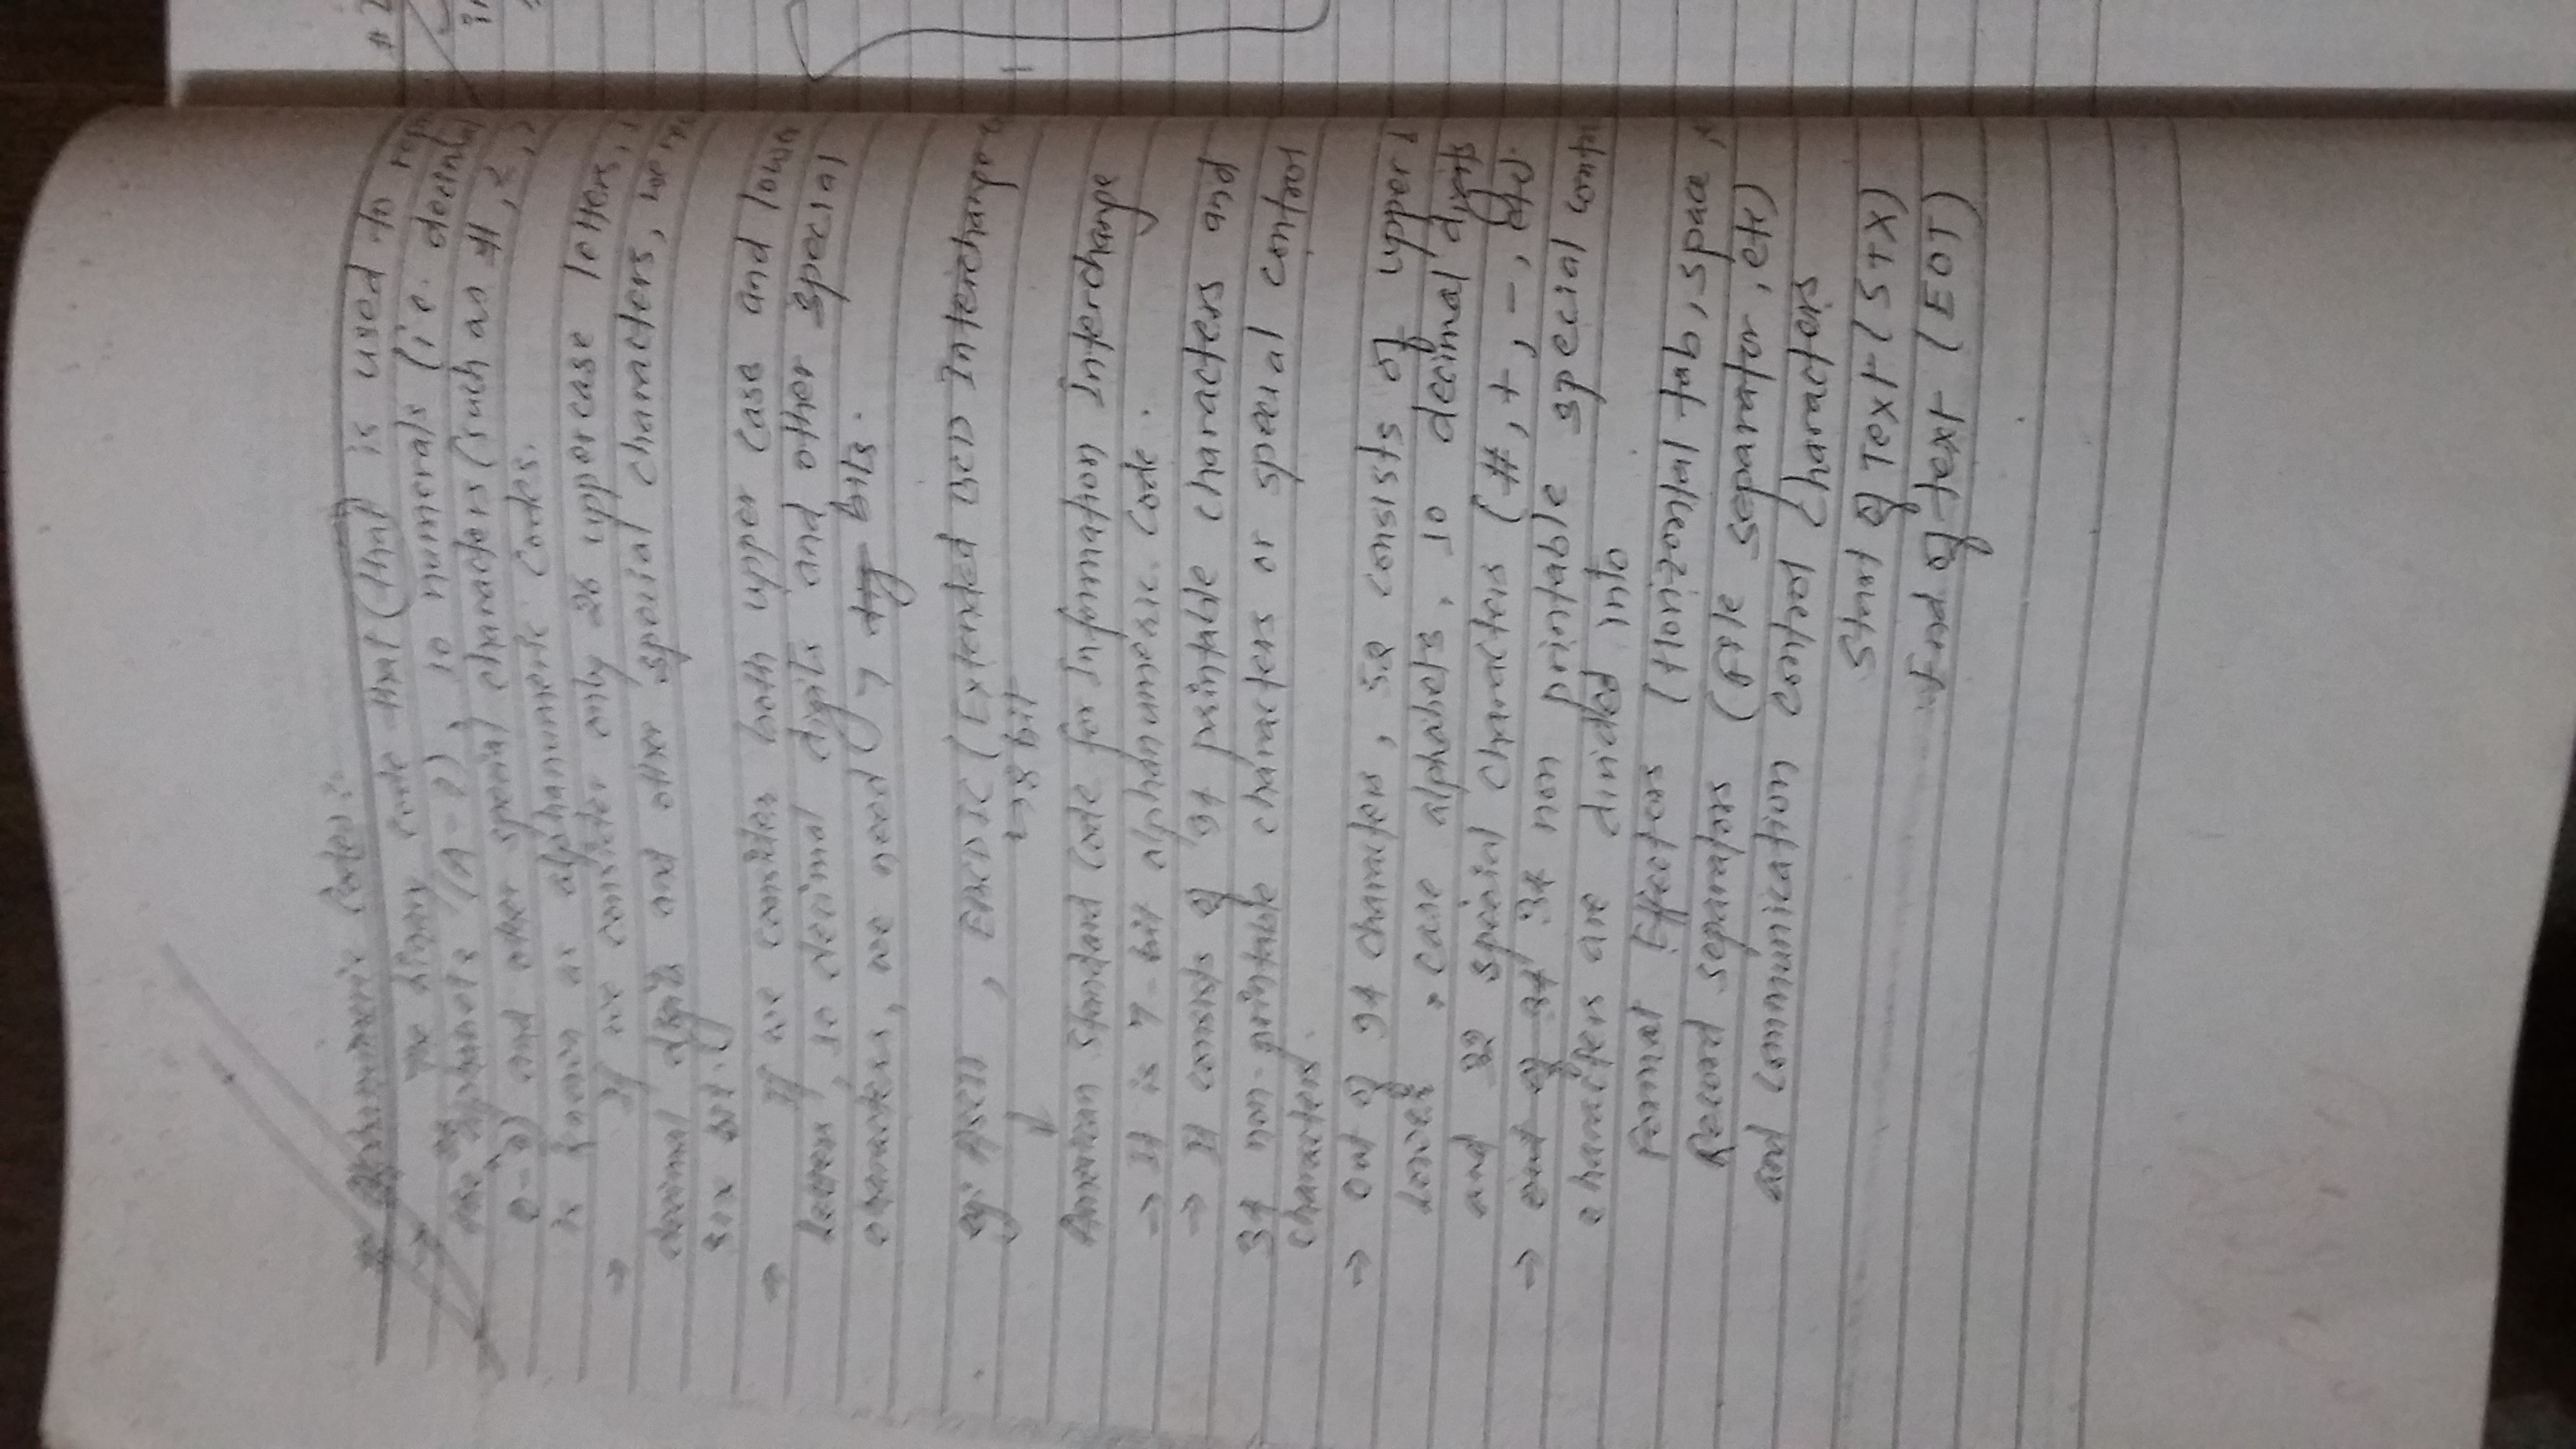 Alphanumeric Codes :-
→ The binary code that (that) is used to
alphabets (A-Z), 10 numerals (i.e. decimal
0-9) and other special characters (such as #, <, >
is known as alphanumeric Codes.
→ If we consider only 26 uppercase letters,
decimal digits and other special characters, we
six bit.
→ If we consider both upper case and lower
letters, 10 decimal digits and other special
characters, we need 7 dig bits.
eg: ASCII , EBCDIC (Extended BCD Interchange
↓ ↳ 8 bit
American Standard Code for Information Interchange
→ It is 7-bit alphanumeric Code.
→ It consists of 94 printable characters and
34 non-printable characters or special control
characters.
→ Out of 94 characters, 52 consists of upper &
lower case alphabets, 10 decimal digits
and 32 special characters (#, +, -, etc).
→ out of 34 34 non printable special
characters are divided into
Format Effectors (Horizontal tab, space,
Record separators (File separator, etc)
and communication control characters
Start of Text (STX)
End of text (EOT)
#